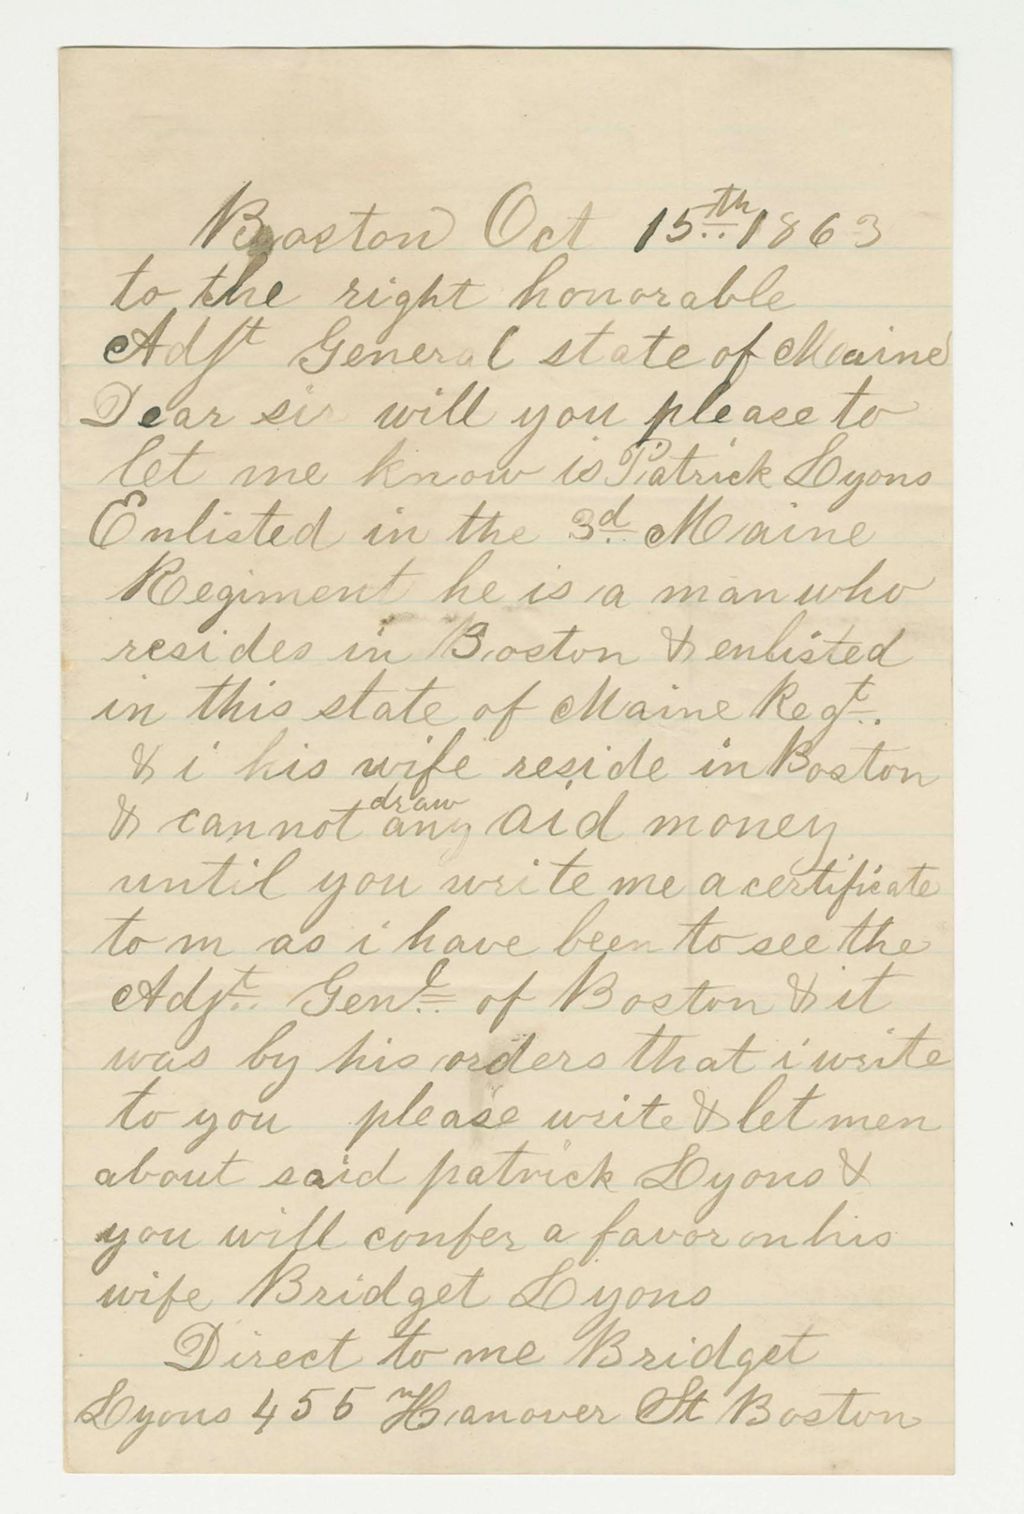 Boston Oct 15th 1863
to the right honorable
Adjt General state of Maine
Dear sir will you please to
let me know is Patrick Lyons
Enlisted in the 3d Maine
Regiment he is a man who
resides in Boston & enlisted
in this state of Maine Regt.
& i his wife reside in Boston
& cannot draw any aid money
until you write me a certificate
to m as i have been to see the
Adjt. Genl. of Boston & it
was by his orders that i write
to you please write & let men
about said patrick Lyons &
you will confer a favor on his
wife Bridget Lyons
Direct to me Bridget
Lyons 455 Hanover St Boston